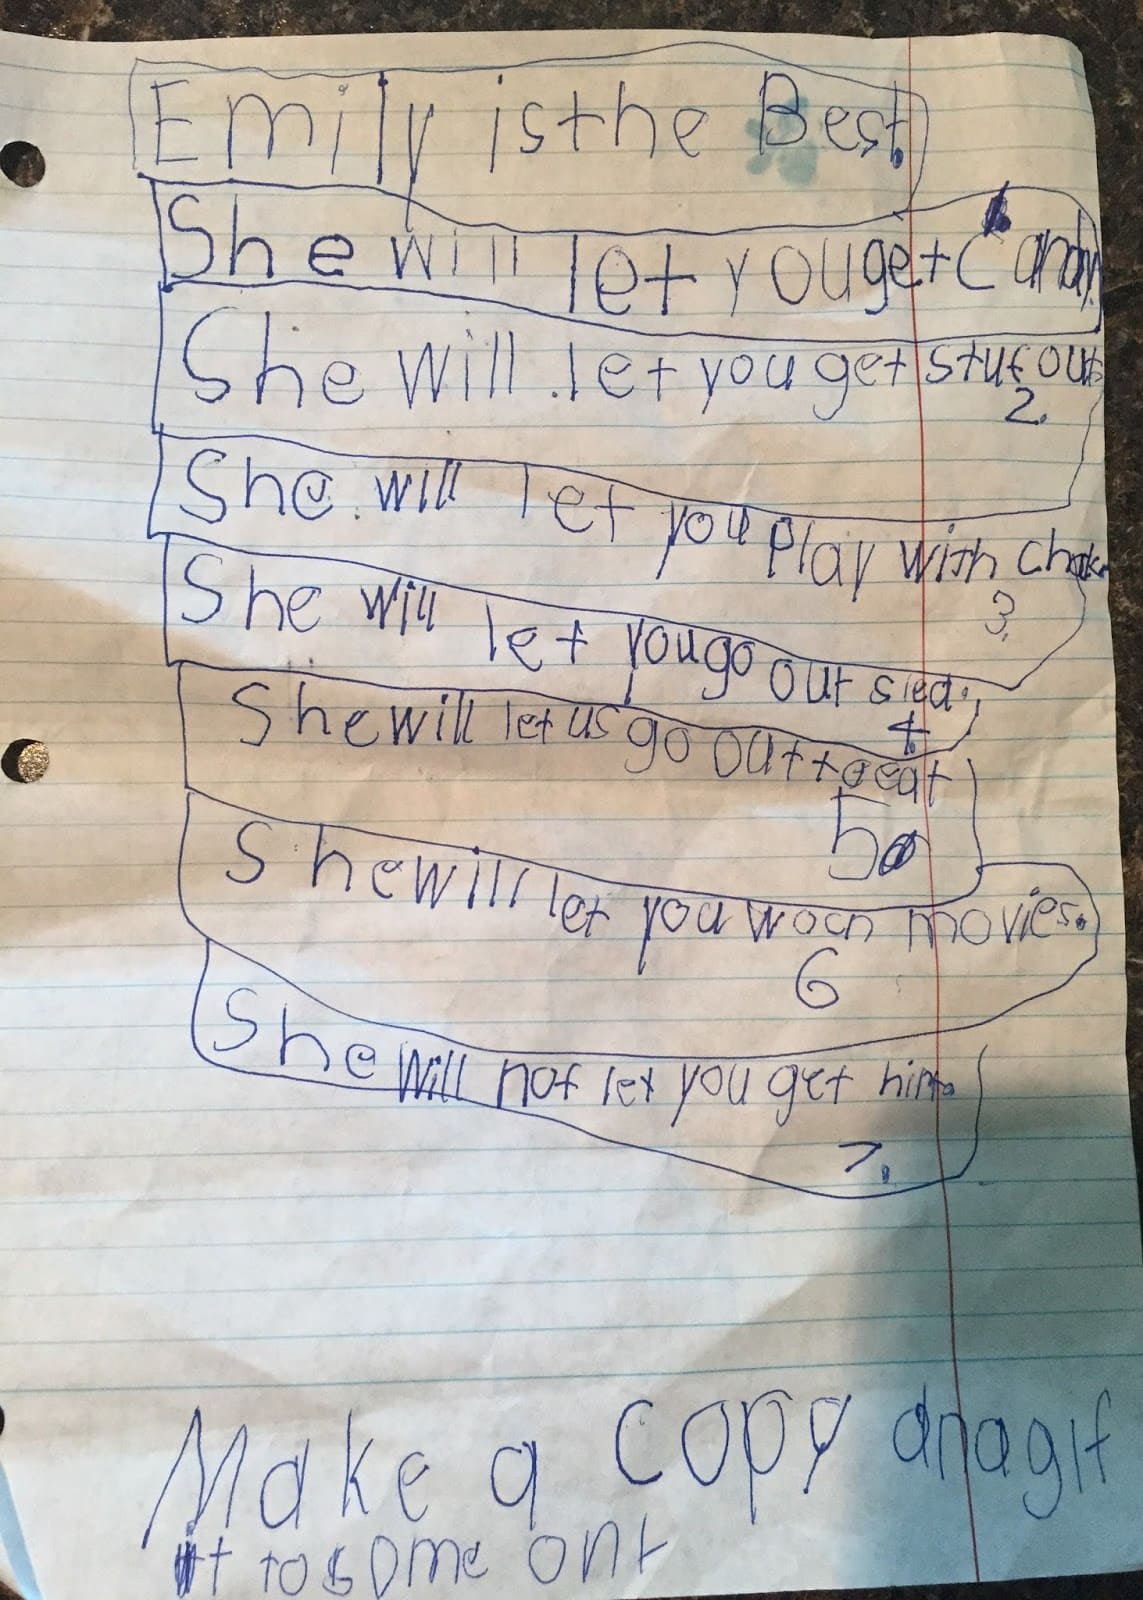 Emily is the Best.
She will let you get Candy.
She will let you get stuf out
2.
She will let you Play with
3.
She will let you go out sled.
4
She will let us go out to eat
5
She will let you woch movies.
6
She will not let you get hirt.
7.
Make a copy and gif
it to some one